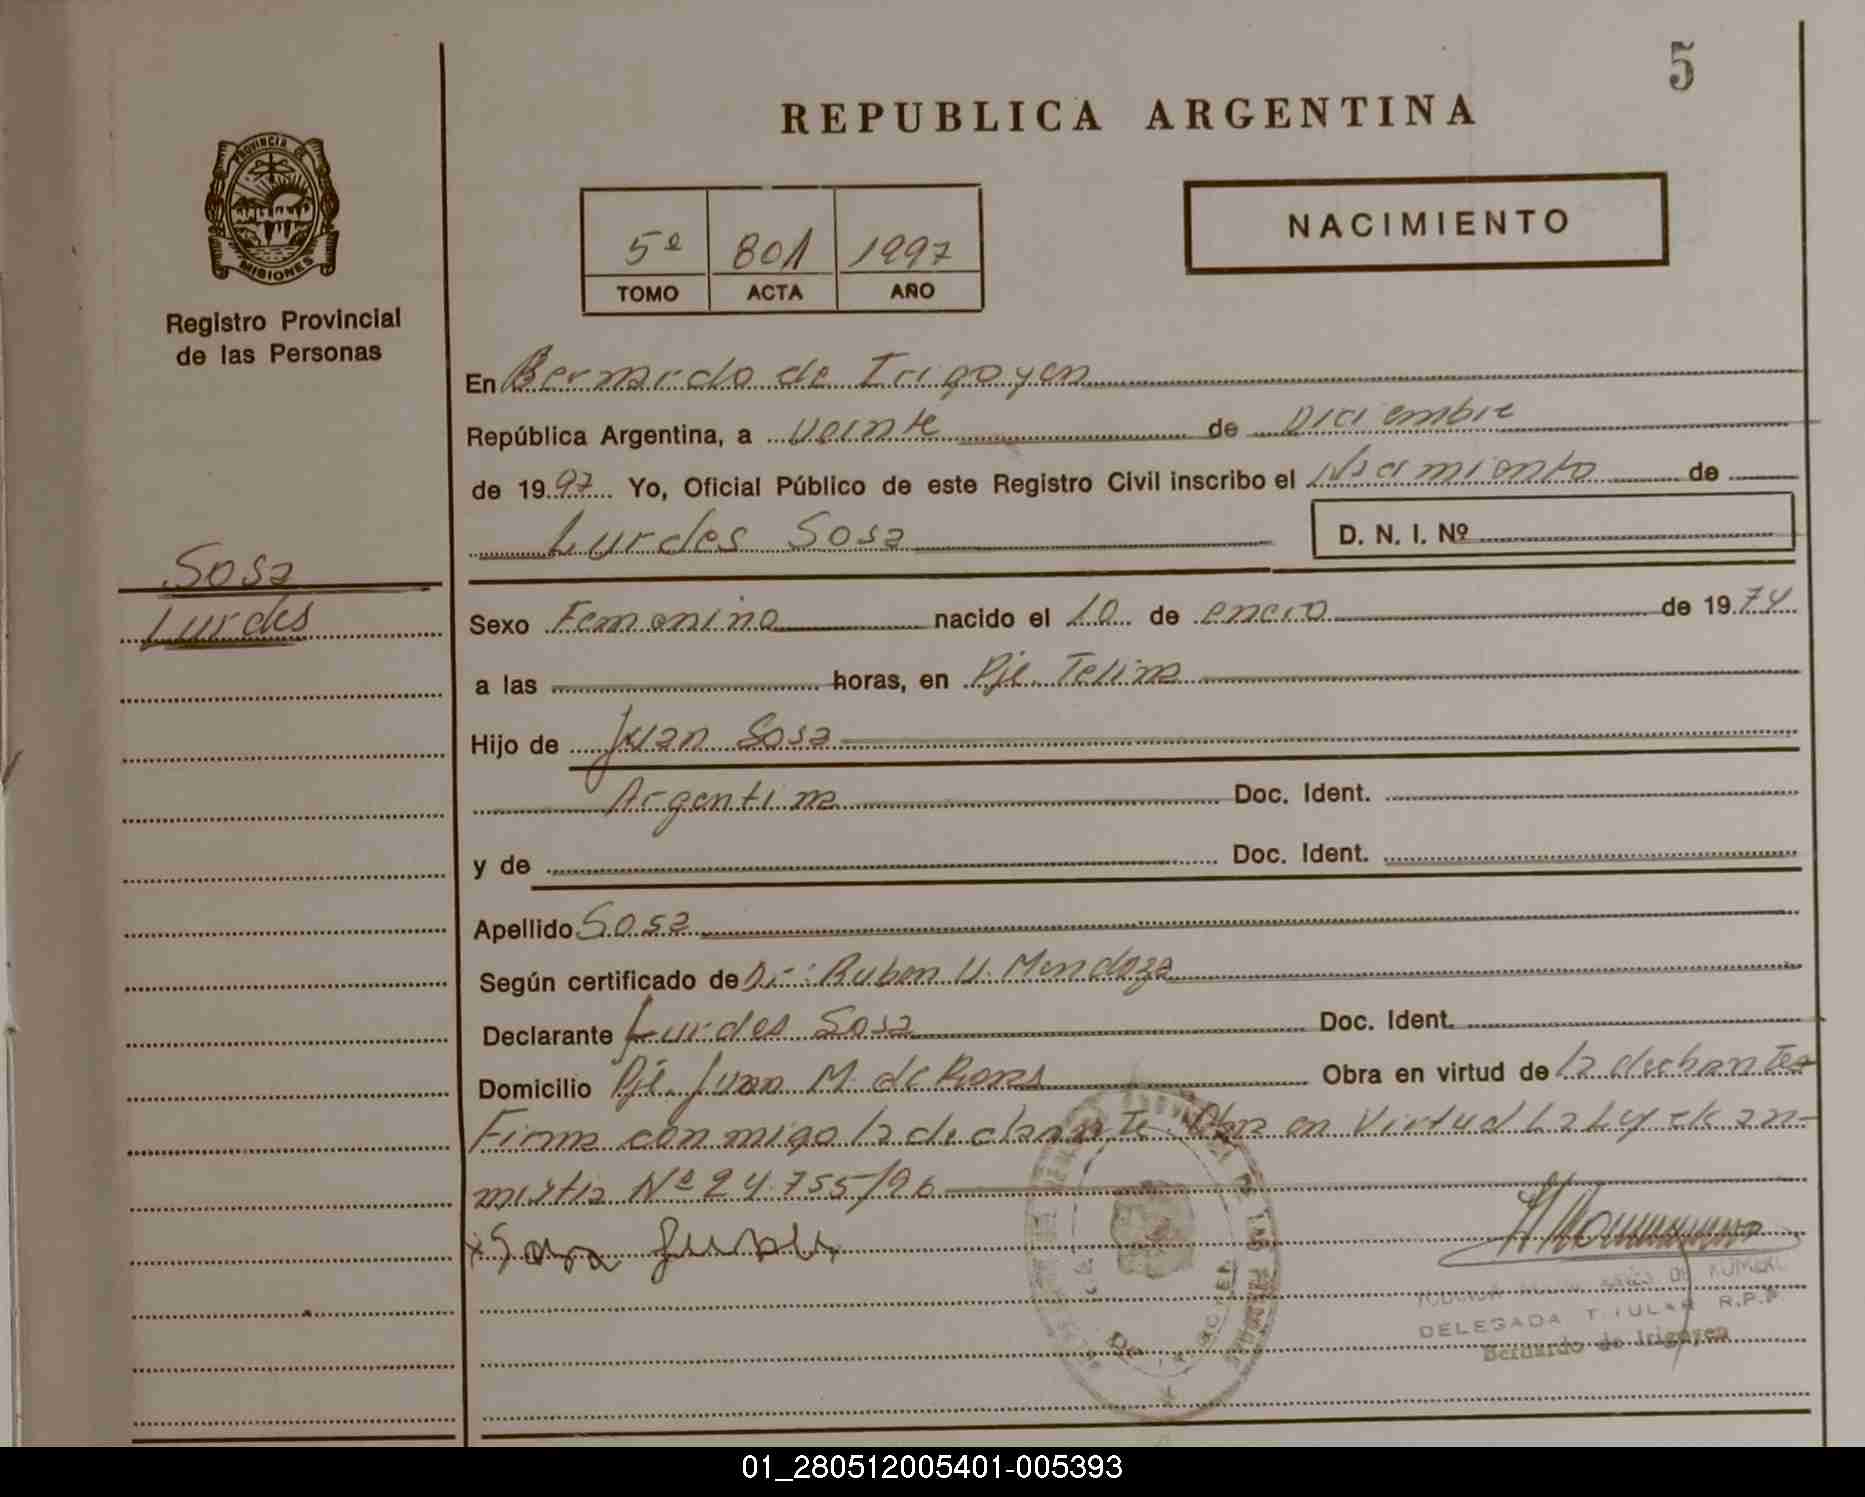 5
REPUBLICA ARGENTINA
PROVINCIA DE
MISIONES
Registro Provincial
de las Personas
NACIMIENTO
5º 801 1997
TOMO ACTA AÑO
En Bernardo de Irigoyen
República Argentina, a veinte de Diciembre
de 1997 Yo, Oficial Público de este Registro Civil inscribo el Nacimiento de
Lurdes Sosa D. N. I. Nº
Sosa
Lurdes
Sexo Femenino nacido el 10 de enero de 1974
a las horas, en Pje.
Hijo de Juan Sosa
Argentina Doc. Ident.
y de Doc. Ident.
Apellido Sosa
Según certificado de Dr: Ruben U. Mendoza
Declarante Lurdes Sosa Doc. Ident.
Domicilio Pje. Juan M. de Rosas Obra en virtud de la
Firma conmigo la declarante. Obra en Virtud La Ley de am-
nistia Nº 24.755/96
Sosa
DELEGADA TITULAR R.P.P
Bernardo de Irigoyen
01_280512005401-005393